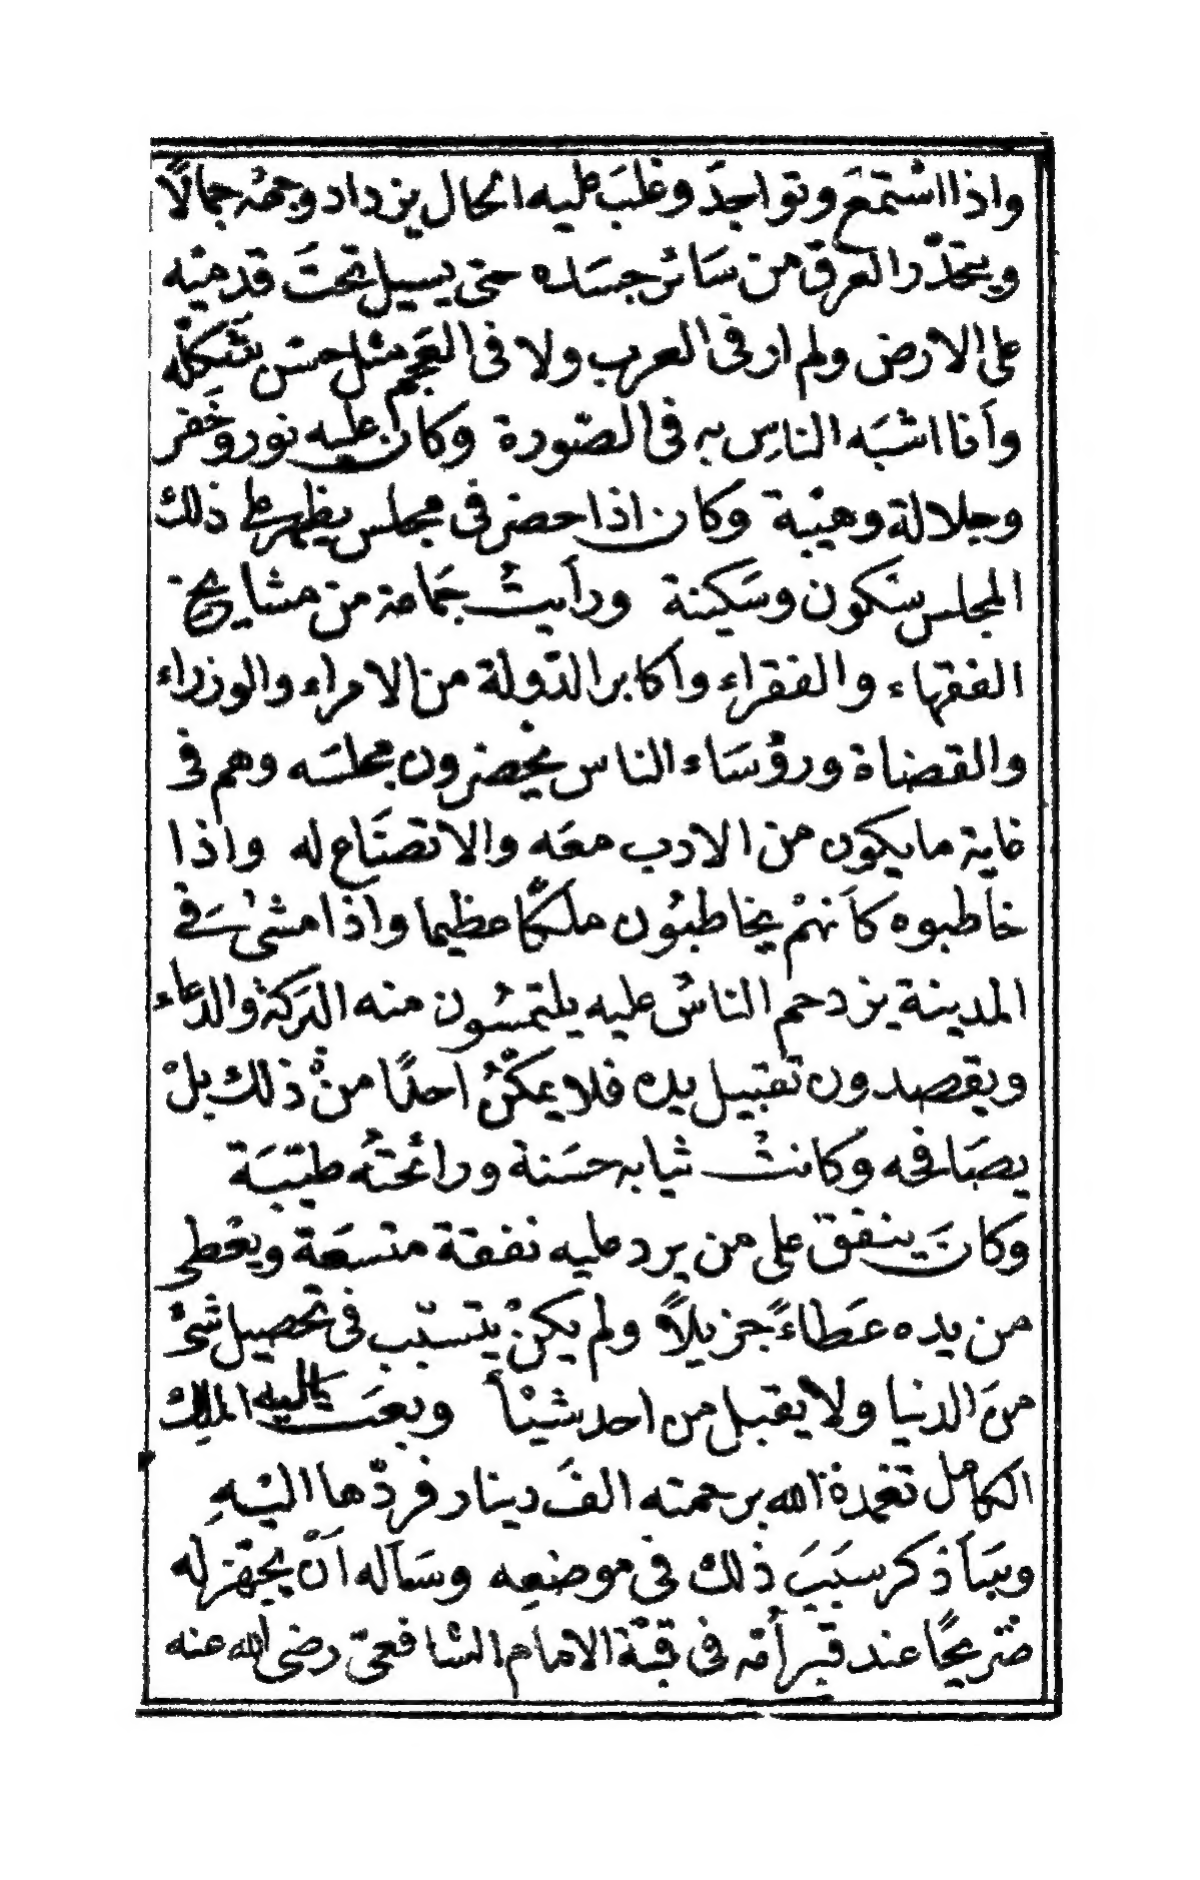 واذا اسْتمَعَ وتواجدَ وغلبَ عليه الحال يزداد وجههُ جمالًا
ويتحدّر العرق من سَائر جسَده حتى يسيل تحتَ قدميْه
على الارض ولم ار فى العرب ولا فى العَجم مثل حسن شَكلْه
وأنا اشبَه الناسِ به فى الصّورة وكان عليه نور وخَفر
وجلالة وهيْبة وكان اذا حضر فى مجلس يظهر على ذلك
المجلس سكون وسَكينة ورأيتُ جَماعة من مشايخ
الفقهاء والفقراء وأكابر الدّولة من الامراء والوزراء
والقضاة ورؤسَاء الناس يحضرون مجلسَه وهم فى
غاية ما يكون من الادب معَه والاتضَاع له واذا
خاطبوه كأنهمْ يخاطبُون ملكًا عظيما واذا مشىٰ فى
المدينة يزدحم الناسُ عليه يلتمسُون منه البركة والدّعاء
ويقصدون تقبيل يده فلا يمكّنُ احدًا منْ ذلك بلْ
يصَافحه وكانتْ ثيابه حسَنة ورائحتهُ طيّبَة
وكانَ ينفق على من يرد عليه نفقة متسعَة ويعْطى
من يده عَطاءً جزيلاً ولم يكنْ يتسبّب فى تحصيل شىْء
منَ الدنيا ولا يقبل من احد شيْأ وبعَث اليه الملك
الكامل تغمده الله برحمته الفَ دينار فردّها اليْهِ
وسَيأ ذكر سَبَبَ ذلك فى موضعِه وسَأله أنْ يجهّز له
ضريحًا عند قبر أمّه فى قبّة الامام الشافعىّ رضى الله عنه